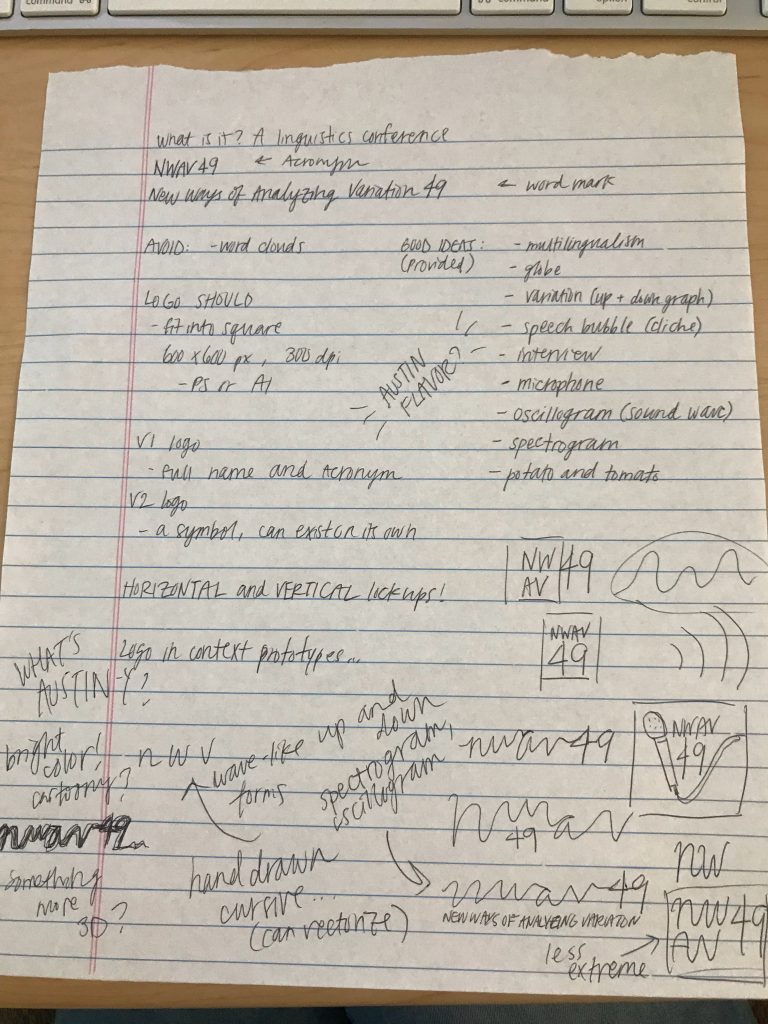 command
command
option
control
What is it? A linguistics conference
NWAV49 ← Acronym
New Ways of Analyzing Variation 49 ← word mark
AVOID: - word clouds
GOOD IDEAS: (provided)
- multilingualism
- globe
- variation (up + down graph)
- speech bubble (cliche)
- interview
- microphone
- oscillogram (sound wave)
- spectrogram
- potato and tomato
LOGO SHOULD
- fit into square
600 x 600 px, 300 dpi
- PS or AI
AUSTIN
FLAVOR?
V1 logo
- Full name and Acronym
V2 logo
- a symbol, can exist on its own
HORIZONTAL and VERTICAL lockups!
Logo in context prototypes...
NW
AV 49
NWAV
49
WHAT'S
AUSTIN-Y?
bright
color!
cartoony?
n w v
wave-like
forms
up and
down
spectrogram,
oscillogram
nwav49
NWAV
49
nwav49
nwav
49
something
more
3D?
hand drawn
cursive...
(can vectorize)
nwav49
NEW WAYS OF ANALYZING VARIATION
less
extreme
nw
nw49
av